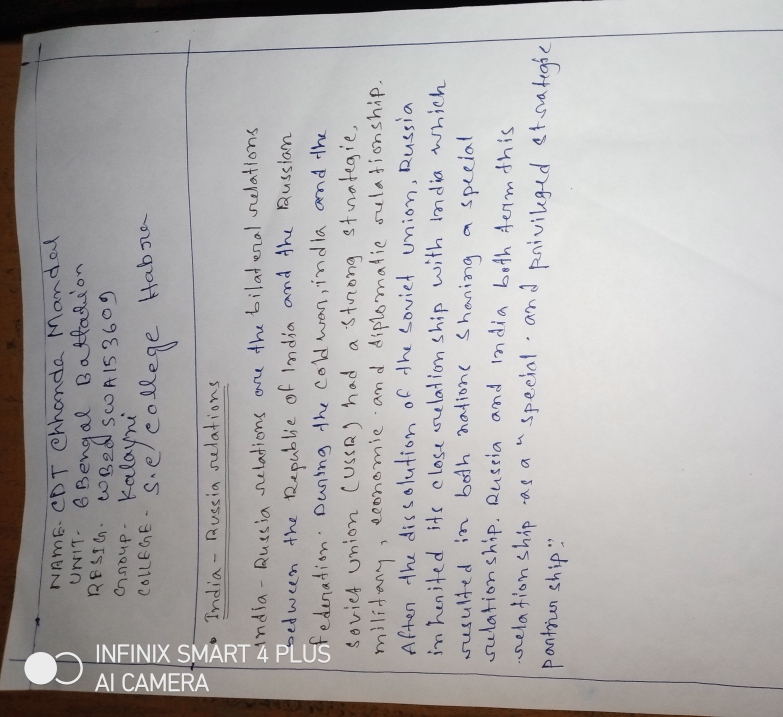 NAME- CDT Chhanda Mandal
UNIT- 6 Bengal Battalion
RESIG- WB2dSWA153609
Group- Kalayni
COLLEGE- S.C College Habra
• India - Russia relations
India - Russia relations are the bilateral relations
between the Republic of India and the Russian
federation. During the cold war, india and the
soviet union (USSR) had a strong strategic,
military, economic and diplomatic relationship.
After the dissolution of the soviet union, Russia
inherited its close relationship with India which
resulted in both natione sharing a special
relationship. Russia and India both term this
relationship as a "special and privileged strategic
partner ship".
INFINIX SMART 4 PLUS
AI CAMERA